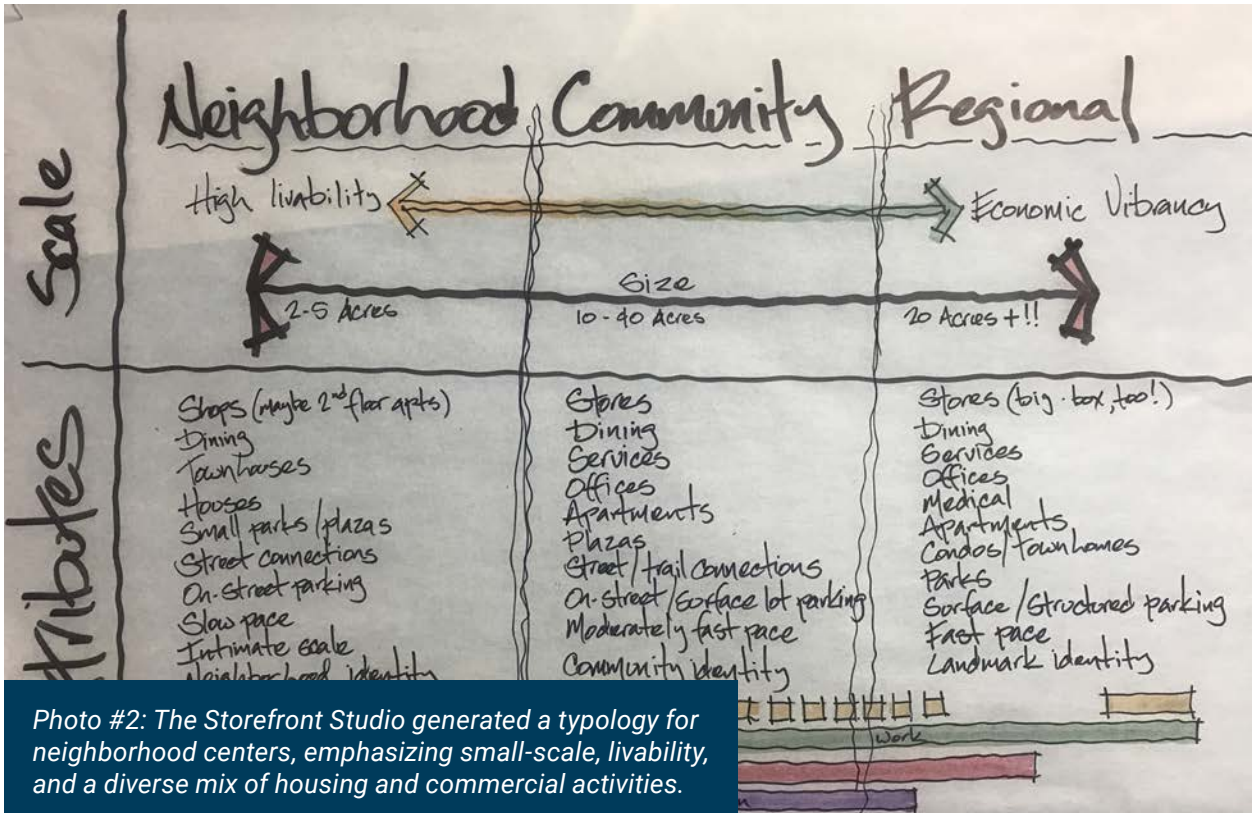 Neighborhood Community Regional
Scale
High livability
Economic Vibrancy
Size
2-5 Acres
10-40 Acres
20 Acres +!!
Attributes
Shops (maybe 2nd floor apts)
Dining
Townhouses
Houses
Small parks/plazas
Street connections
On-street parking
Slow pace
Intimate scale
Neighborhood identity
Stores
Dining
Services
Offices
Apartments
Plazas
Street/trail connections
On-street/surface lot parking
Moderately fast pace
Community identity
Stores (big-box, too!)
Dining
Services
Offices
Medical
Apartments
Condos/Townhomes
Parks
Surface/Structured parking
Fast pace
Landmark identity
work
Photo #2: The Storefront Studio generated a typology for
neighborhood centers, emphasizing small-scale, livability,
and a diverse mix of housing and commercial activities.